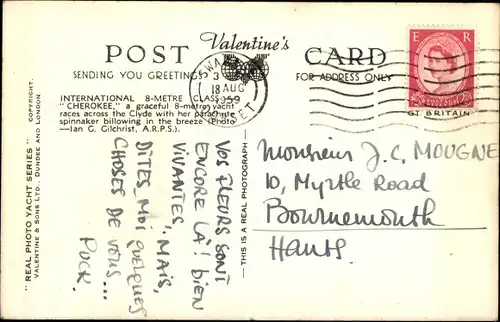 POST Valentine's CARD
SENDING YOU GREETINGS
FOR ADDRESS ONLY
E R
GT. BRITAIN
SWANAGE
3
18 AUG
1959
DORSET
INTERNATIONAL 8-METRE CLASS
"CHEROKEE," a graceful 8-metre yacht
races across the Clyde with her parachute
spinnaker billowing in the breeze (Photo
—Ian G. Gilchrist, A.R.P.S.).
"REAL PHOTO YACHT SERIES" COPYRIGHT.
VALENTINE & SONS LTD., DUNDEE AND LONDON
—THIS IS A REAL PHOTOGRAPH—
VOS FLEURS SONT
ENCORE LÀ! BIEN
VIVANTES, MAIS,
DITES MOI QUELQUES
CHOSES DE VOUS...
PUCK.
Monsieur J.C. MOUGNE
10, Myrtle Road
Bournemouth
Hants.